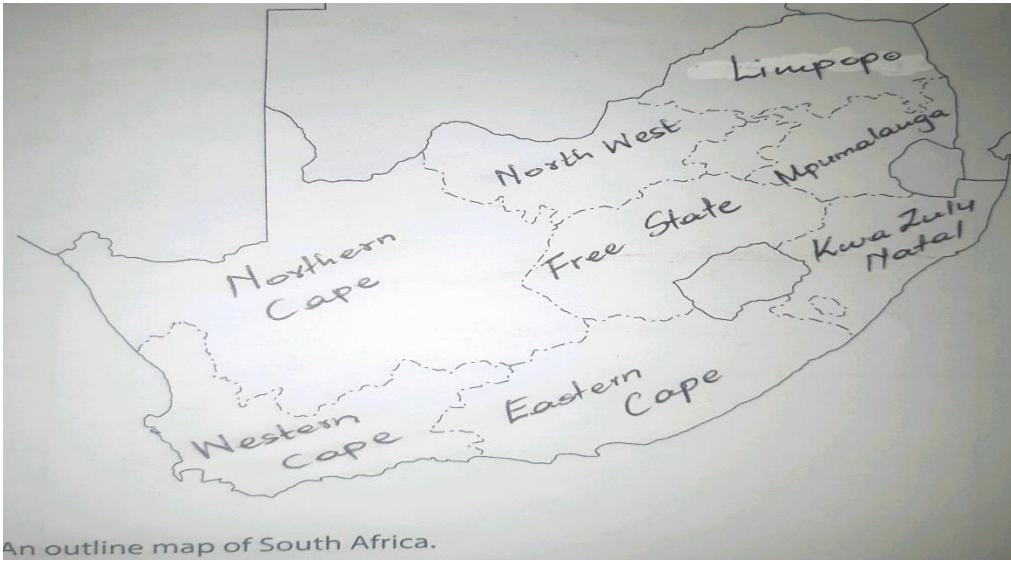 Limpopo
North West
Mpumalanga
Free State
Kwa Zulu
Natal
Northern
Cape
Eastern
Cape
Western
Cape
An outline map of South Africa.